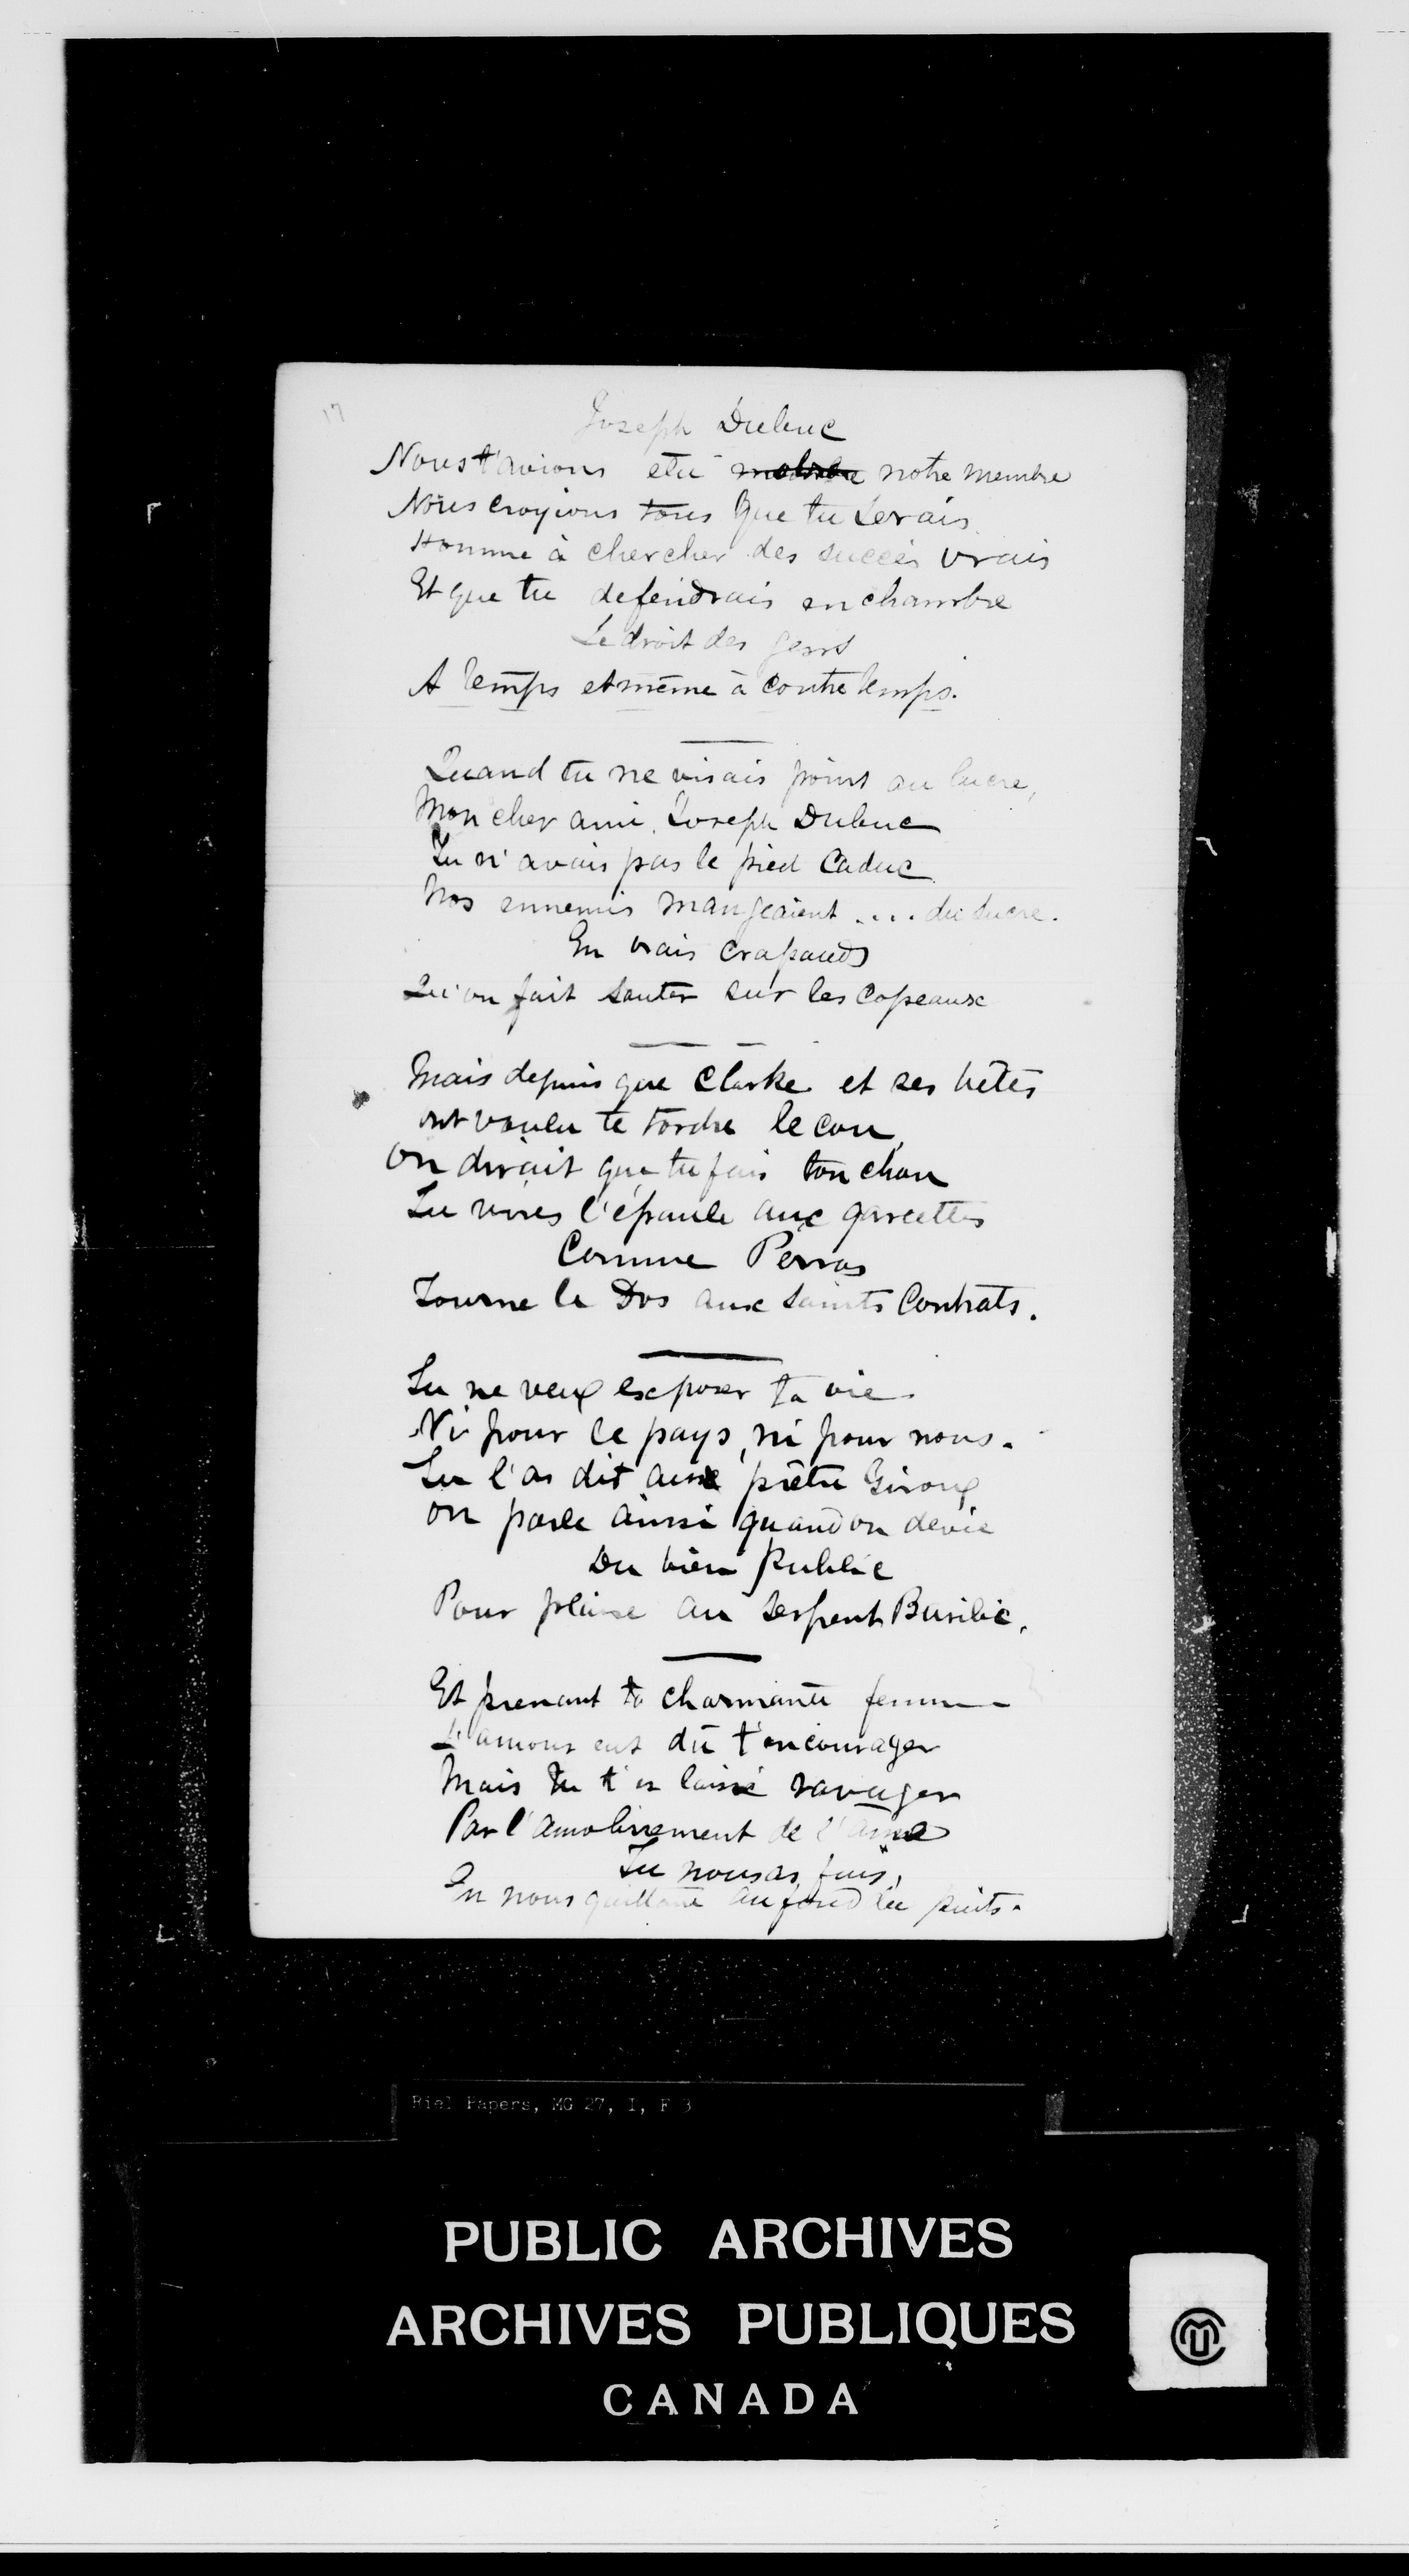 17
Joseph Dubuc
Nous t'avions élu notre membre
Nous croyions tous que tu serais
Homme à chercher des succès vrais
Et que tu defendrais en chambre
Le droit des gens
A temps et même à contre temps.
Quand tu ne visais point au lucre,
Mon cher ami Joseph Dubuc
Tu n'avais pas le pied caduc
Nos ennemis mangeaient .... du sucre.
En vrais crapauds
Qu'on fait sauter sur les copeaux
Mais depuis que Clarke et ses bêtes
ont voulu te tordre le cou,
on dirait que tu fais ton chou
Tu vires l'épaule aux garcettes
Comme Perras
Tourne le Dos aux Saints Contrats.
Tu ne veux exposer ta vie
Ni pour le pays, ni pour nous.
Tu l'as dit aux prêtre Giroux
on parle ainsi quand on devie
Du bien public
Pour plaire au serpent Basilic.
Et prenant ta charmante femme
L'amour eut dû t'encourager
Mais Tu t'es laissé ravager
Par l'amolissement de l'ame
Tu nous as fuis,
En nous au fond du puits.
Riel Papers, MG 27, I, F 3
PUBLIC ARCHIVES
ARCHIVES PUBLIQUES
CANADA